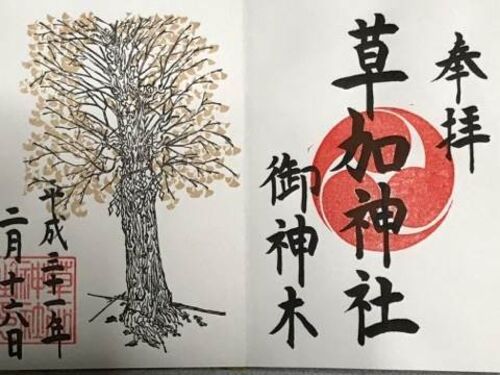 奉拝
草加神社
御神木
平成三十一年
二月十六日